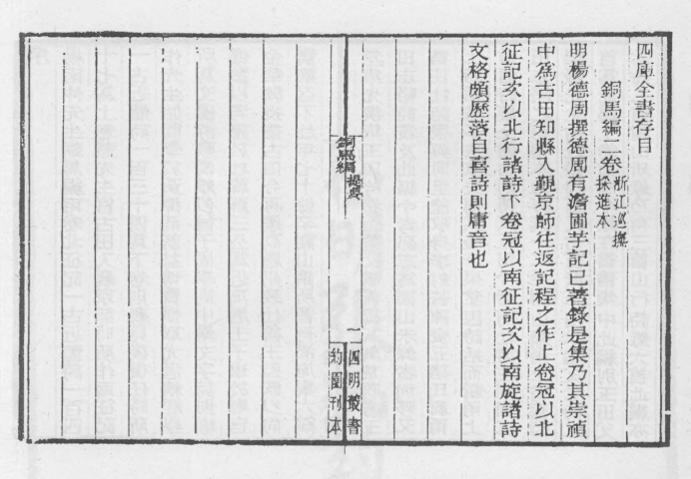 四庫全書存目
銅馬編二卷
浙江巡撫
採進本
明楊德周撰德周有澹圃芋記已著錄是集乃其崇禎
中為古田知縣入觀京師往返記程之作上卷冠以北
征記次以北行諸詩下卷冠以南征記次以南旋諸詩
文格頗歷落自喜詩則庸音也
銅馬編
提要
一
四明叢書
約園刊本